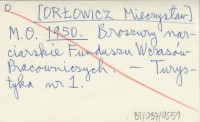 [ORŁOWICZ Mieczysław]
M.O. 1950. Broszury nar-
ciarskie Funduszu Wczasów
Pracowniczych. – Turys-
tyka nr 1.
BT/037/0557